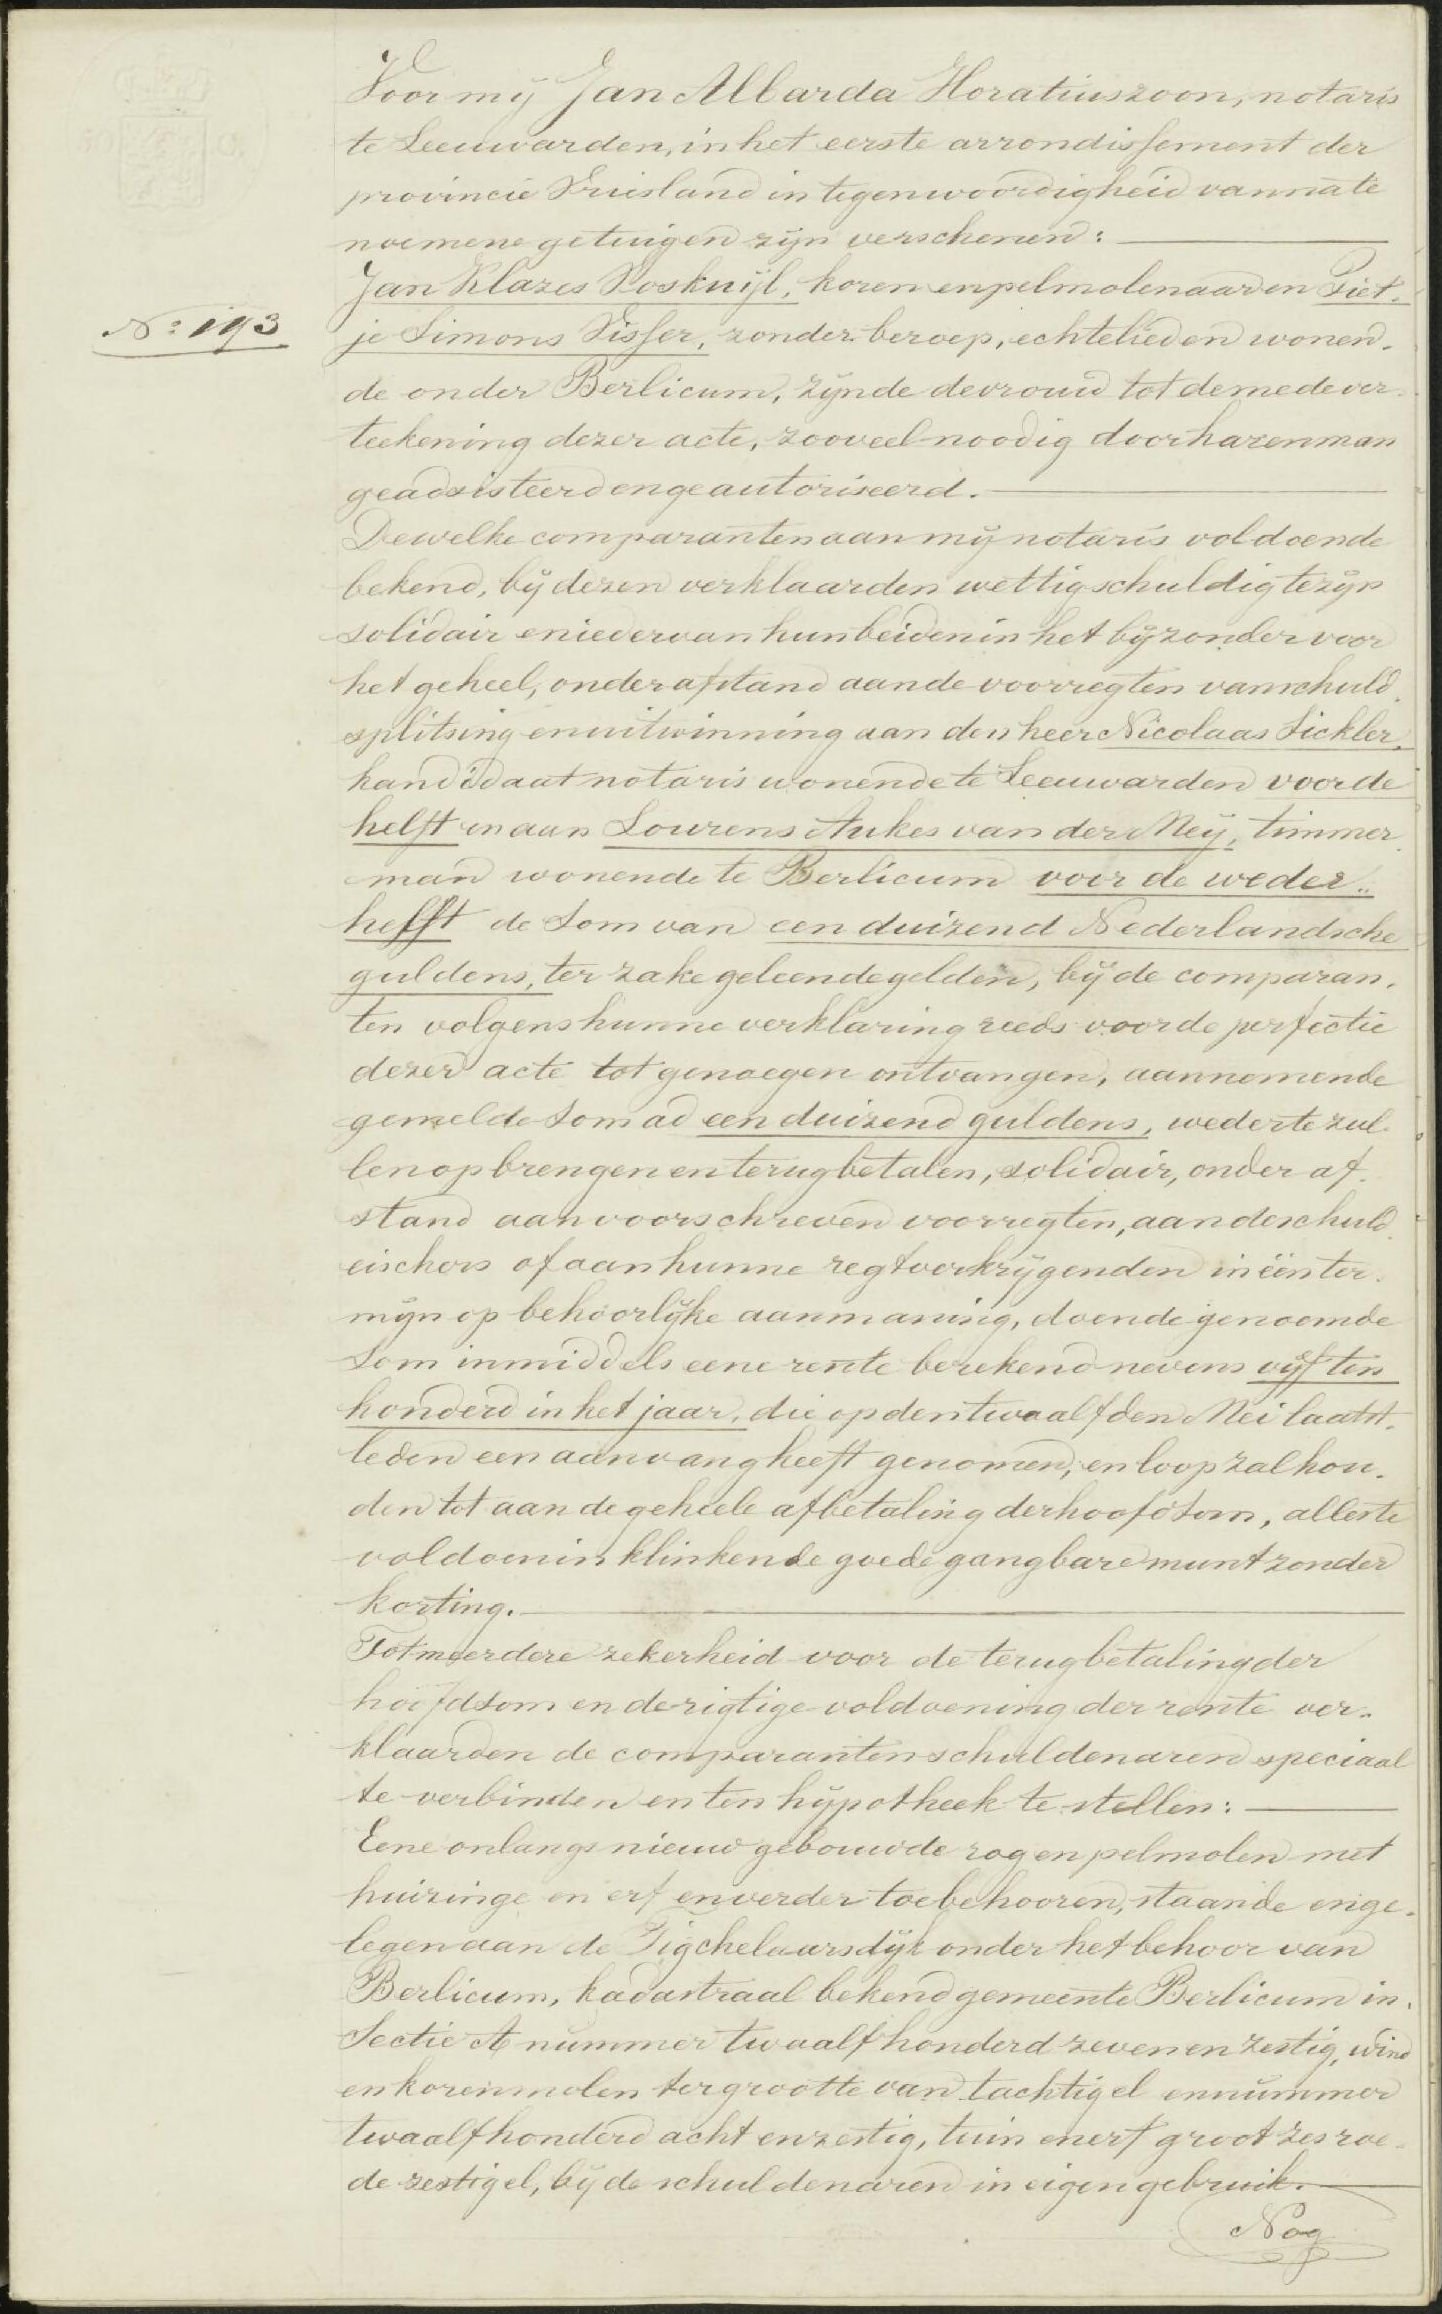 Voor mij Jan Albarda Horatiuszoon, notaris
te Leeuwarden, in het eerste arrondissement der
provincie Friesland in tegenwoordigheid van nate
noemene getuigen zijn verschenen:
Jan Klazes Poskuijl, koren en pelmolenaar en Piet-
No 193
je Simons Visser, zonder beroep, echtelieden wonen-
de onder Berlicum, zijnde de vrouw tot de medever-
teekening dezer acte, zooveel noodig door haren man
geadsisteerd en geautoriseerd.
Dewelke comparanten aan mij notaris voldoende
bekend, bij dezen verklaarden wettig schuldig te zijn
solidair en ieder van hun beiden in het bijzonder voor
het geheel, onder afstand aan de voorregten van schuld-
splitsing en uitwinning aan den heer Nicolaas Sickler,
kandidaat notaris wonende te Leeuwarden voor de
helft en aan Lourens Aukes van der Meij, timmer-
man wonende te Berlicum voor de weder-
helft de som van een duizend Nederlandsche
guldens, ter zake geleende gelden, bij de comparan-
ten volgens hunne verklaring reeds voor de perfectie
dezer acte tot genoegen ontvangen, aannemende
gemelde som ad een duizend guldens, weder te zul-
len opbrengen en terugbetalen, solidair, onder af-
stand aan voorschreven voorregten, aan de schuld-
eischers of aan hunne regtverkrijgenden in één ter-
mijn op behoorlijke aanmaning, doende genoemde
som inmiddels eene rente berekend nevens vijf ten
honderd in het jaar, die op den twaalfden Mei laatst-
leden een aanvang heeft genomen, en loop zal hou-
den tot aan de geheele afbetaling der hoofdsom, alles te
voldoen in klinkende goede gangbare munt zonder
korting.
Tot meerdere zekerheid voor de terugbetaling der
hoofdsom en de rigtige voldoening der rente ver-
klaarden de comparanten schuldenaren speciaal
te verbinden en ten hijpotheek te stellen:
Eene onlangs nieuw gebouwde rog en pelmolen met
huizinge en erf en verder toebehooren, staande en ge-
legen aan de Tigchelaarsdijk onder het behoor van
Berlicum, kadastraal bekend gemeente Berlicum in
Sectie A nummer twaalfhonderd zeven en zestig, wind
en korenmolen ter grootte van tachtig el en nummer
twaalfhonderd acht en zestig, tuin en erf groot zes roe-
de zestig el, bij de schuldenaren in eigen gebruik.
Nog